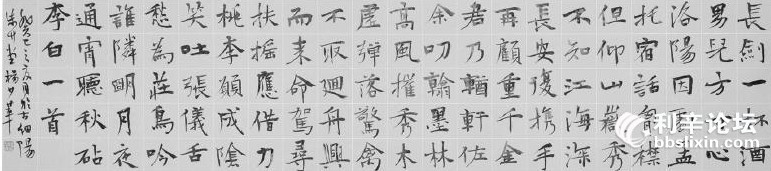 長劍一杯酒
男兒方寸心
洛陽因劇孟
托宿話胸襟
但仰山嶽秀
不知江海深
長安復携手
再顧重千金
君乃輶軒佐
余叨翰墨林
高風摧秀木
虛彈落驚禽
不取迴舟興
而來命駕尋
扶搖應借力
桃李願成陰
笑吐張儀舌
愁為莊舄吟
誰隣明月夜
通宵聽秋砧
李白一首
癸巳之夏月於古細陽
利辛论坛
bbslixin.com